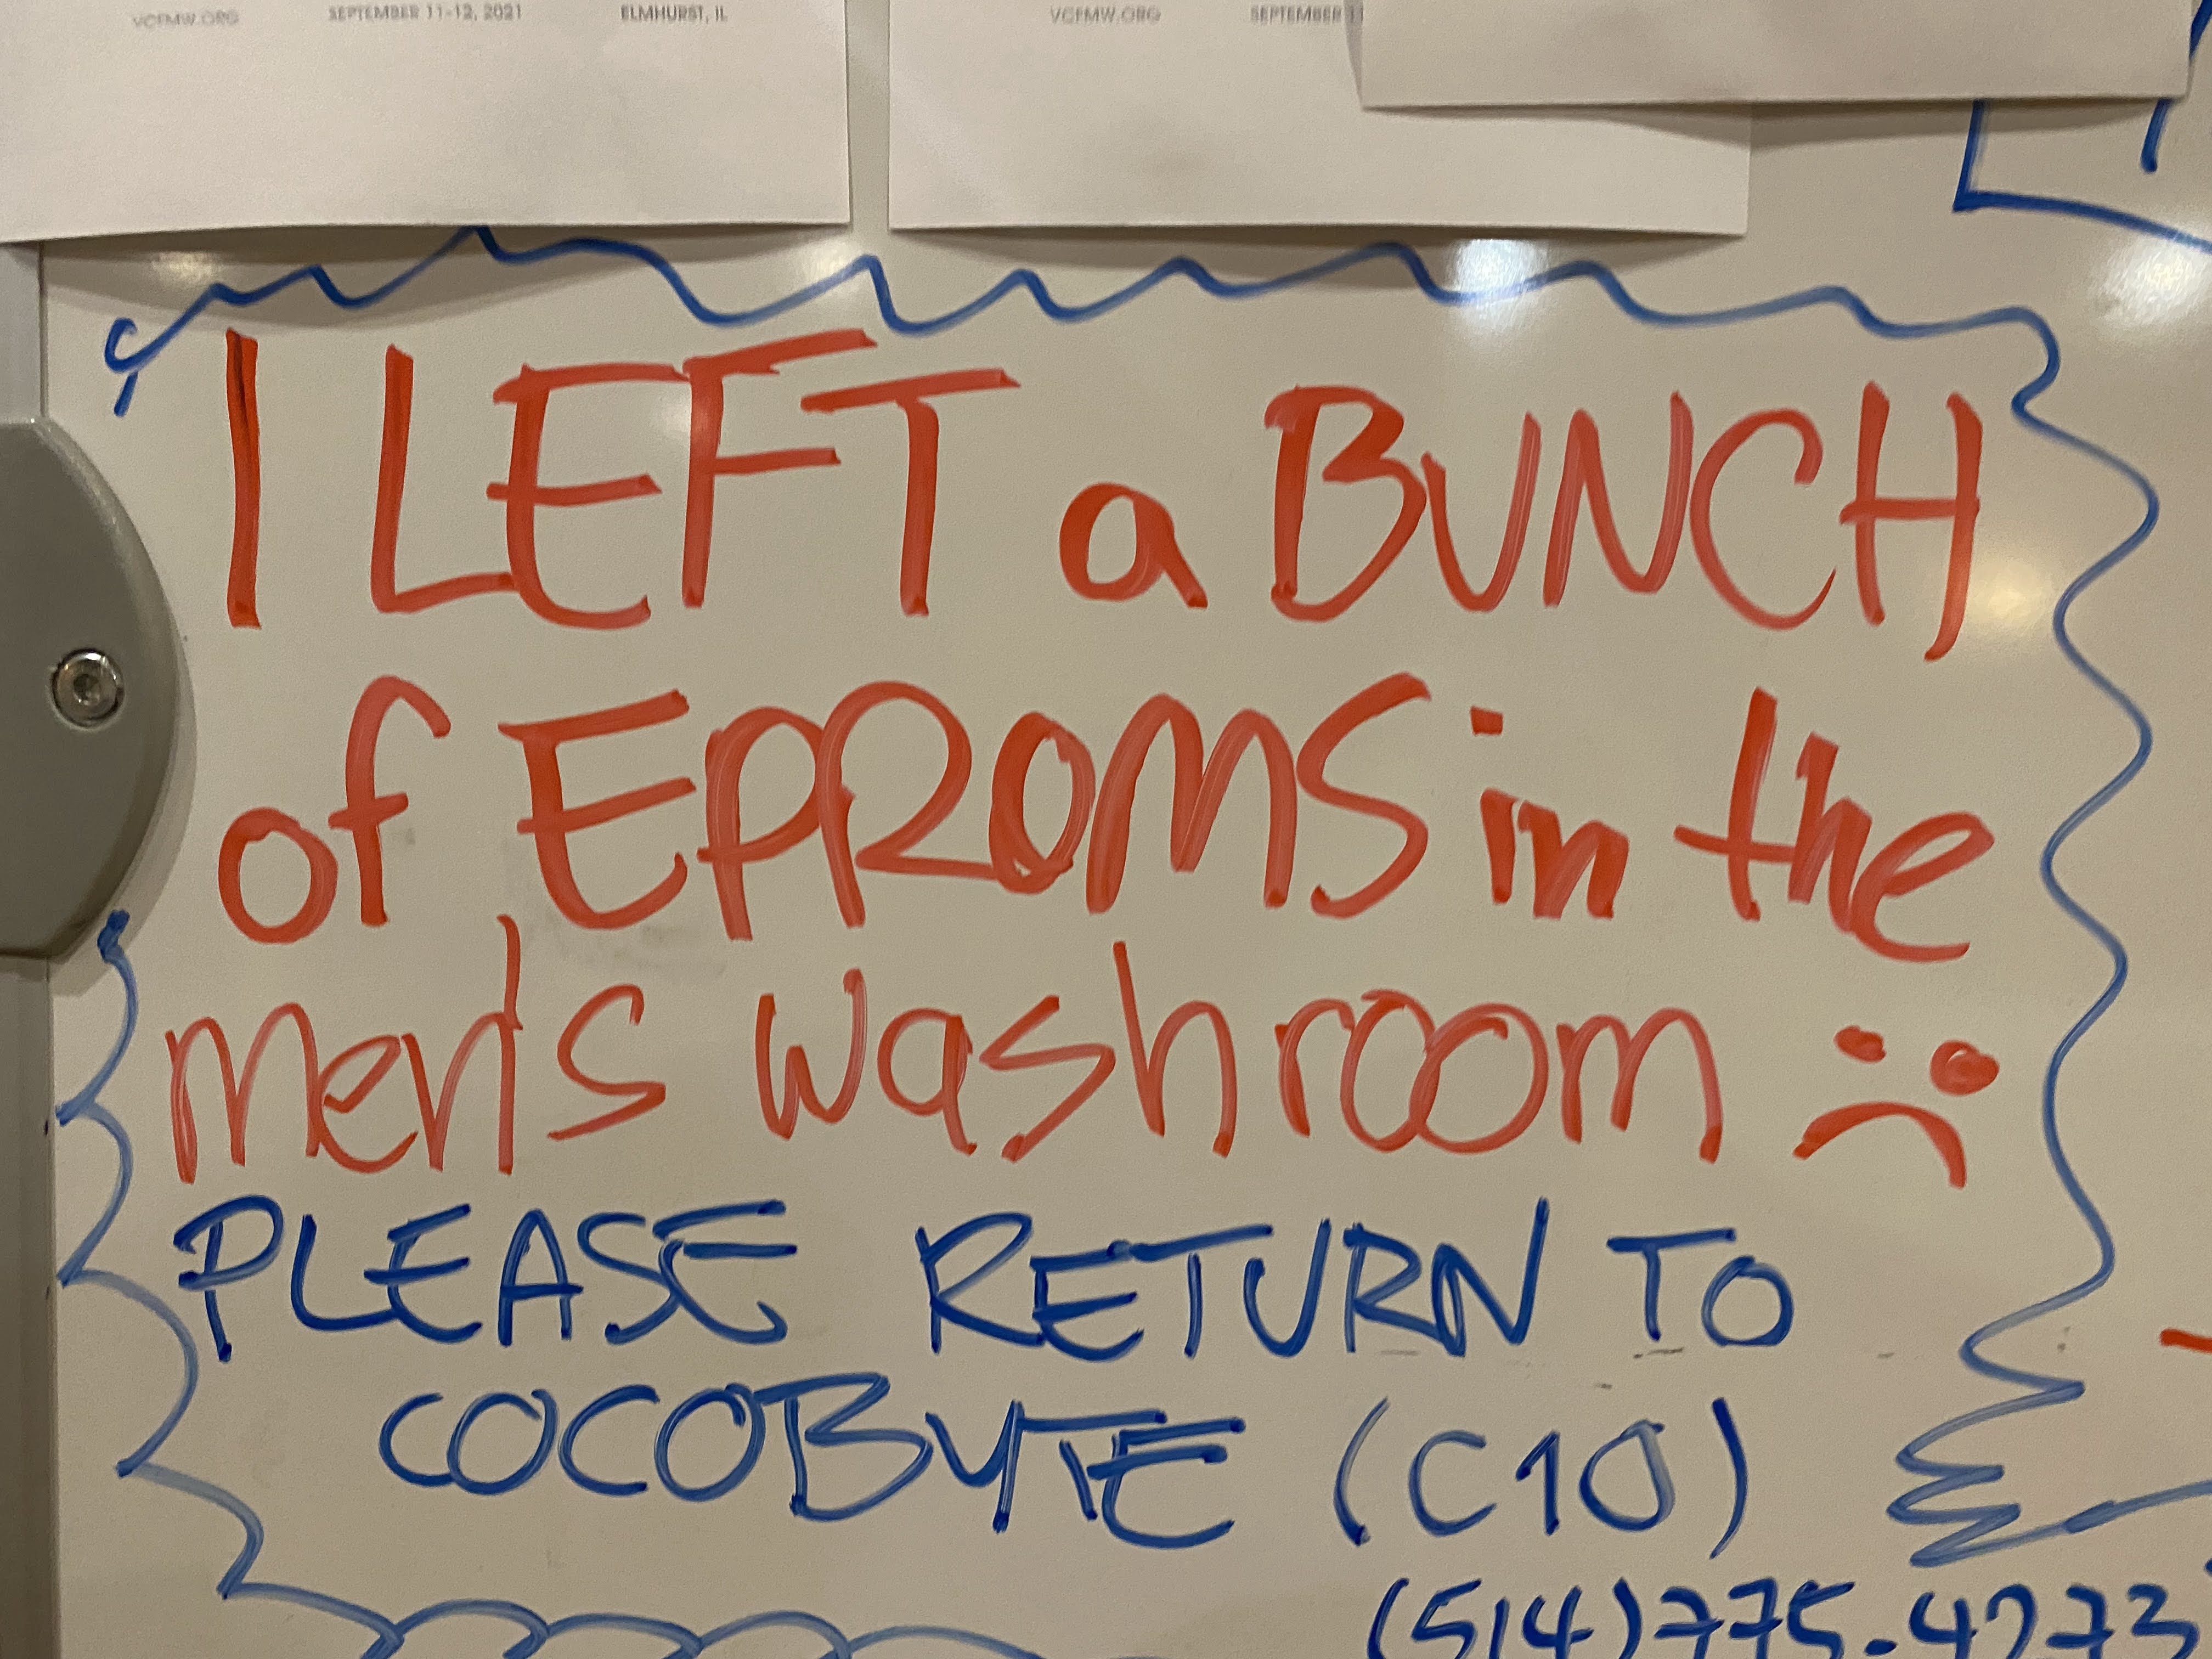 VCFMW.ORG SEPTEMBER 11-12, 2021 ELMHURST, IL
VCFMW.ORG SEPTEMBER 11
I LEFT a BUNCH
of EPROMS in the
men's washroom :(
PLEASE RETURN TO
COCOBYTE (C10)
(514)775-4273